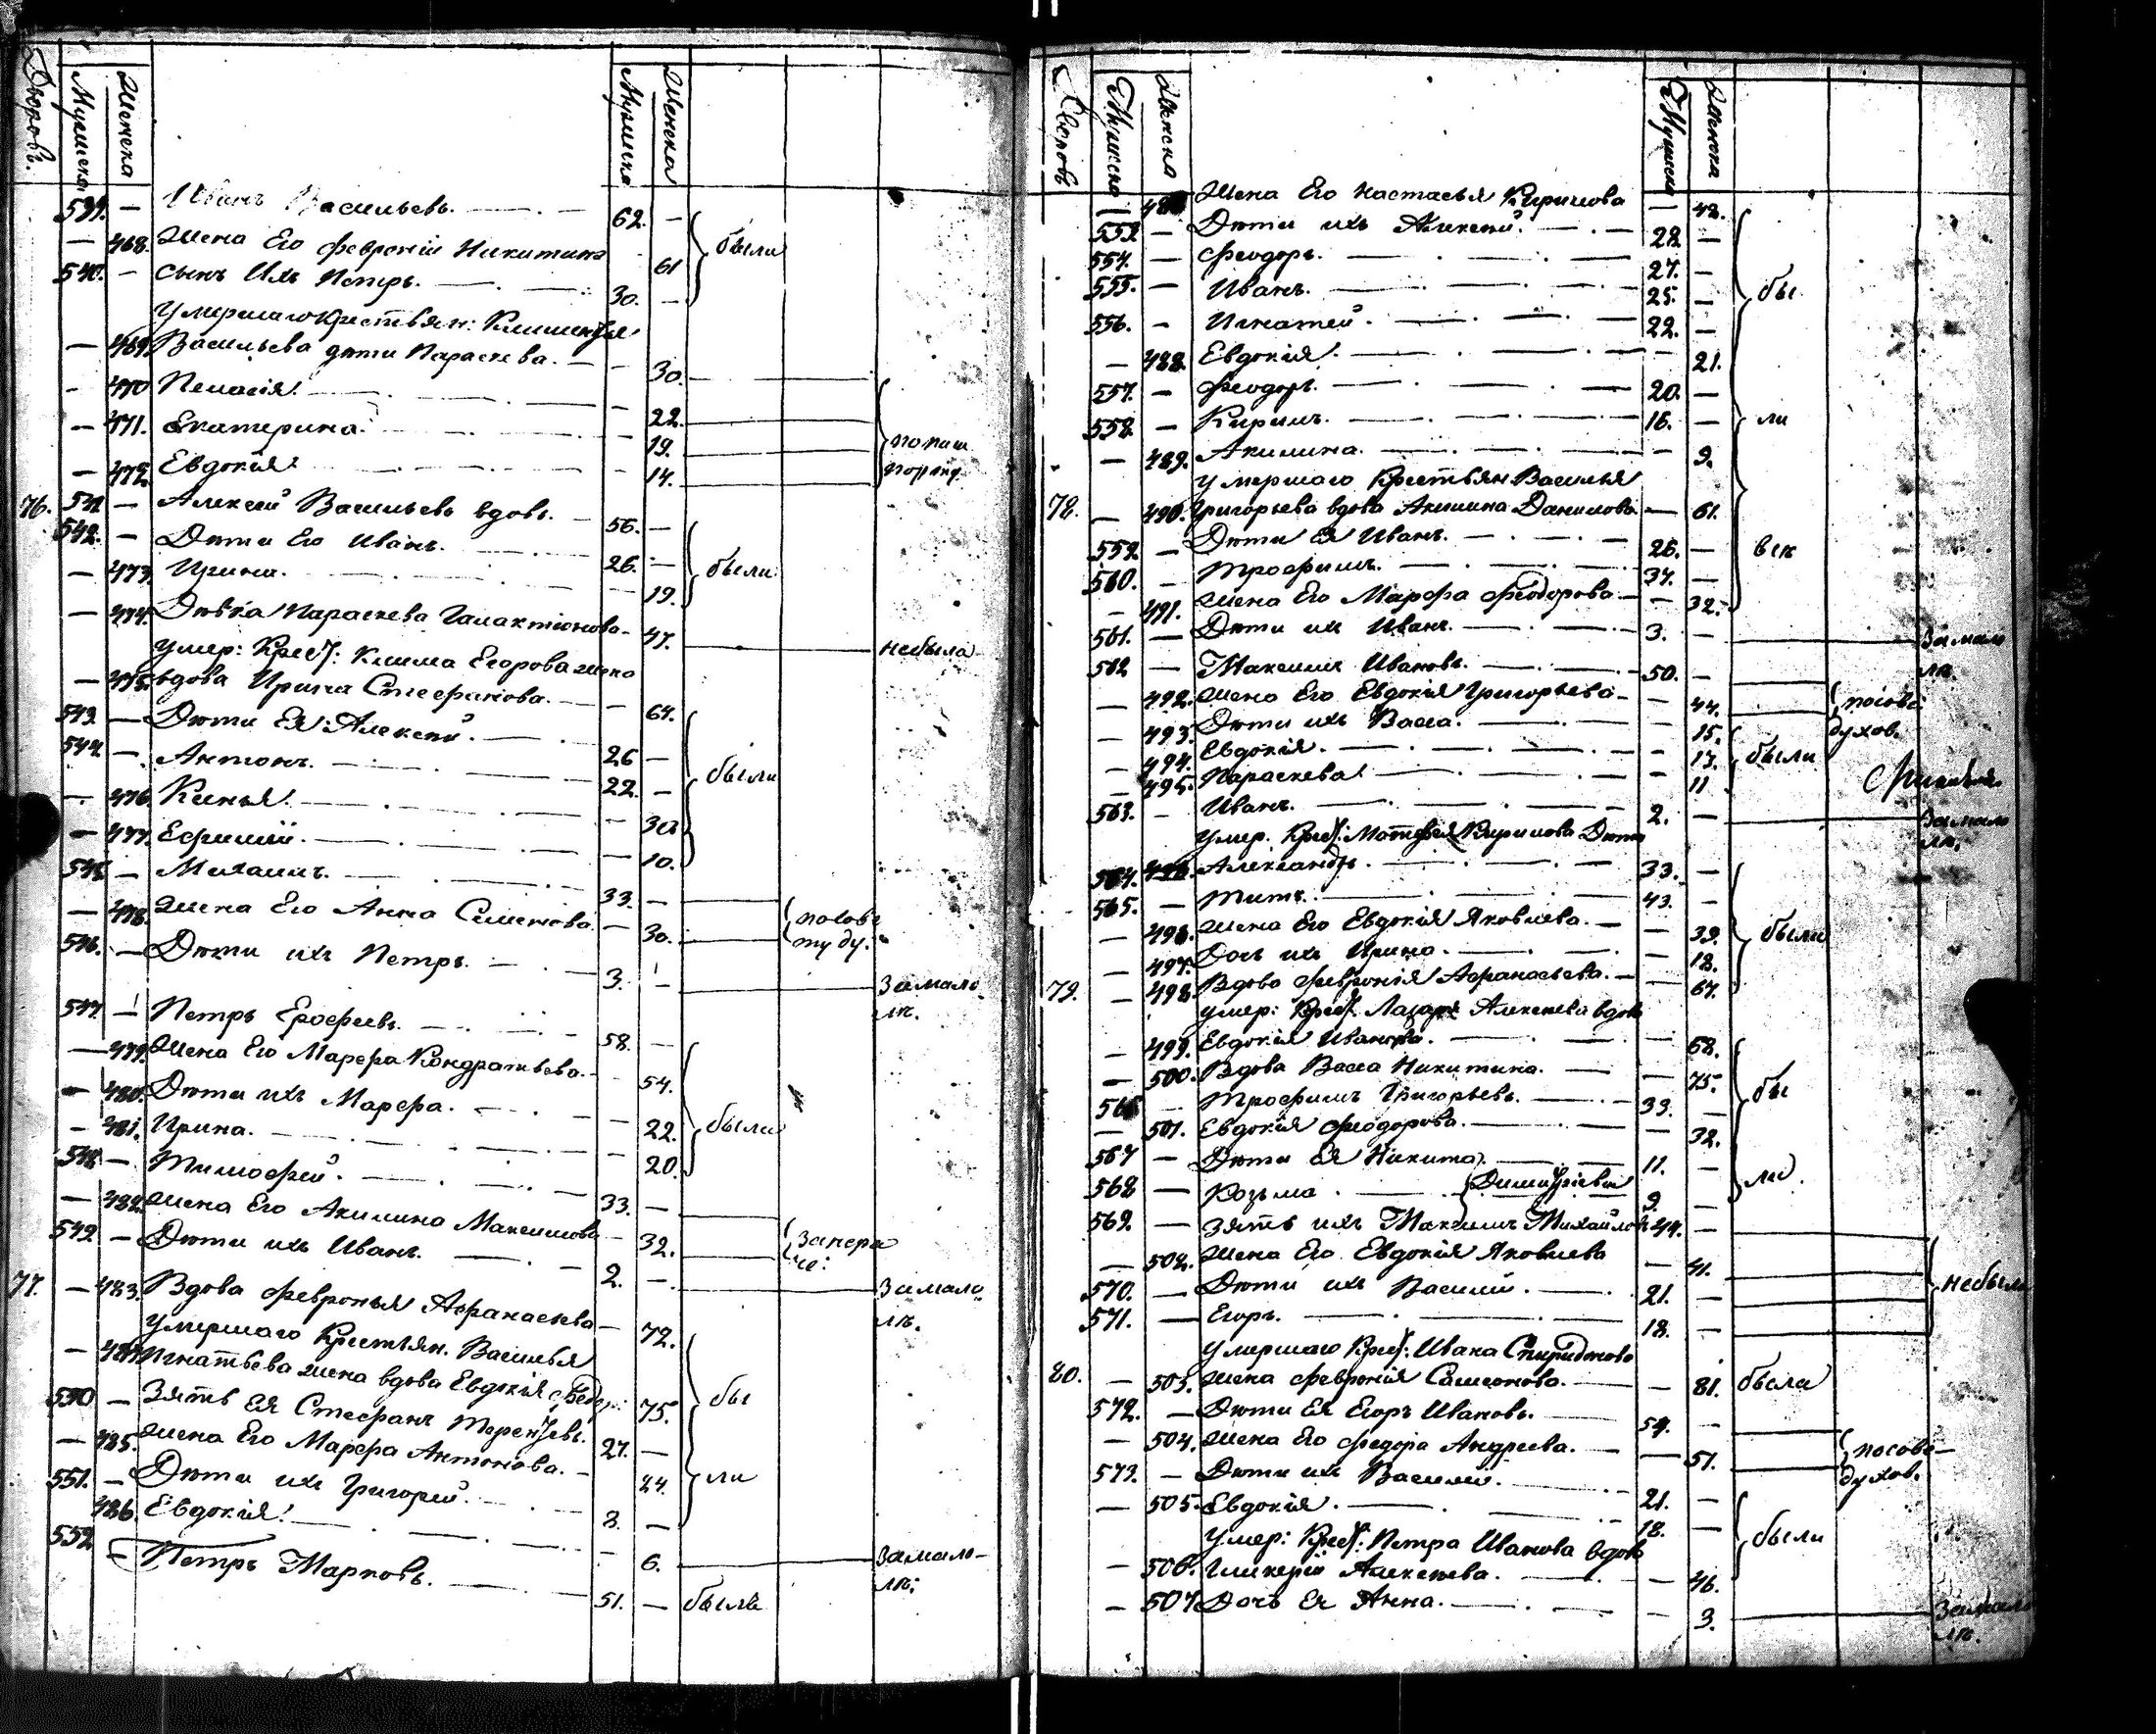 Дворовъ. Мужеска Женска Мужеска Женска
539. — Иванъ Васильевъ. — 62. —
— 468. Жена Его Февронія Никитина 61 были
540. — сынъ Ихъ Петръ. — 30. —
Умершаго крестьян: Климентья
— 469. Васильева дѣти Параскева. — 30.
— 470 Пелагія. — 22.
— 471. Екатерина. — 19.
— 472 Евдокія. — 14.
76. 541 — Алексей Васильевъ вдовъ. — 56. —
542. — Дѣти Его Иванъ. 26. — были
— 473. Ирина. — 19.
— 474. Дѣвка Параскева Галактіонова — 47. небыла
умер: Крест: Клима Егорова жена
— 475. вдова Ирина Стефанова. — 64.
543. — Дѣти Ея Алексѣй. — 26 —
544. — Антонъ. — 22. — были
— 476. Ксенья. — 30.
— 477. Ефимій. — 10.
545. — Михаилъ. — 33. —
— 478. Жена Его Анна Семенова. 30. посовѣ
ту ду.
546. — Дѣти ихъ Петръ. — 3. — Замало
лѣ.
547. — Петръ Ерофеевъ. — 58. —
— 479. Жена Его Марфа Кондратьева. — 54.
— 480. Дѣти ихъ Марфа. — 22. были
— 481. Ирина. — 20.
548. — Тимофей. — 33. —
— 482. Жена Его Акилина Максимова — 32.
549. — Дѣти ихъ Иванъ. — 2. — Замало
лѣ.
77. — 483. Вдова Февронья Афанасьева — 72.
Умершаго Крестьян. Василья
— 484. Игнатьева жена вдова Евдокія Ѳедор: 75. бы
550 — Зять Ея Стефанъ Терентьевъ. 27. —
— 485. Жена Его Марфа Антонова. — 24. ли
551. — Дѣти ихъ Григорей. — 8. —
486. Евдокія. — 6. Замало
лѣ:
552 Петръ Марковъ. — 51. — былъ
Дворовъ Мужеска Женска Мужеска Женска
— Жена Его Настасья Кирилова — 48.
553. — Дѣти ихъ Алексѣй. — 28. —
554. — Феодоръ. — 27. —
555. — Иванъ. — 25. — бы
556. — Игнатей. — 22. —
— 488. Евдокія. — 21.
557. — Феодоръ. — 20. —
558. — Кирилъ. — 16. — ли
— 489. Акилина. — 9.
умершаго Крестьян Василья
78. — 490. Григорьева вдова Акилина Данилова — 61.
559. — Дѣти Ея Иванъ. — 26. — всѣ
560. — Трофимъ. — 34. —
— 491. Жена Его Марфа Феодорова — 32.
561. — Дѣти ихъ Иванъ. — 3. — Замало
лѣ.
562 — Максимъ Ивановъ. — 50. —
— 492. Жена Его Евдокія Григорьева — 44. посовѣ
— 493. Дѣти ихъ Васса. — 15. духов.
— 494. Евдокія. — 13. были
— 495. Параскева. — 11
563. — Иванъ. — 2. — Замало
лѣ.
умер. Крест: Матфея Кирилова Дѣти
564. Александръ. — 33. —
565. — Титъ. — 43. —
— 496. Жена Его Евдокія Яковлева. — 39. были
— 497. Дочь ихъ Ирина. — 18.
79. — 498 Вдова Февронія Афанасьева. — 67.
умер: Крест. Лазаря Алексѣева вдова
— 499. Евдокія Иванова. — 68.
— 500. Вдова Васса Никитина. — 75. бы
566 — Трофимъ Григорьевъ. — 33. —
— 501. Евдокія Феодорова. — 32.
567 — Дѣти Ея Никита. — 11. — ли.
568 — Козьма. — Димитріевы 9. —
569. — Зять ихъ Максимъ Михайловъ 44. —
— 502. Жена Его Евдокія Яковлева — 41.
570. — Дѣти ихъ Василій. — 21. — небыли
571. — Егоръ. — 18. —
Умершаго Крест: Ивана Спиридонова
80. — 503. Жена Февронія Самсонова. — 81. была
572. — Дѣти Ея Егоръ Ивановъ. — 54. —
— 504. Жена Его Федора Андреева. — 51. посовѣ
духов.
573. — Дѣти ихъ Василій. — 21. —
— 505. Евдокія. — 18. — были
умер: Крест: Петра Иванова вдова
— 506. Гликерія Алексѣева. — 46.
— 507 Дочь Ея Анна. — 3. Замало
лѣ.